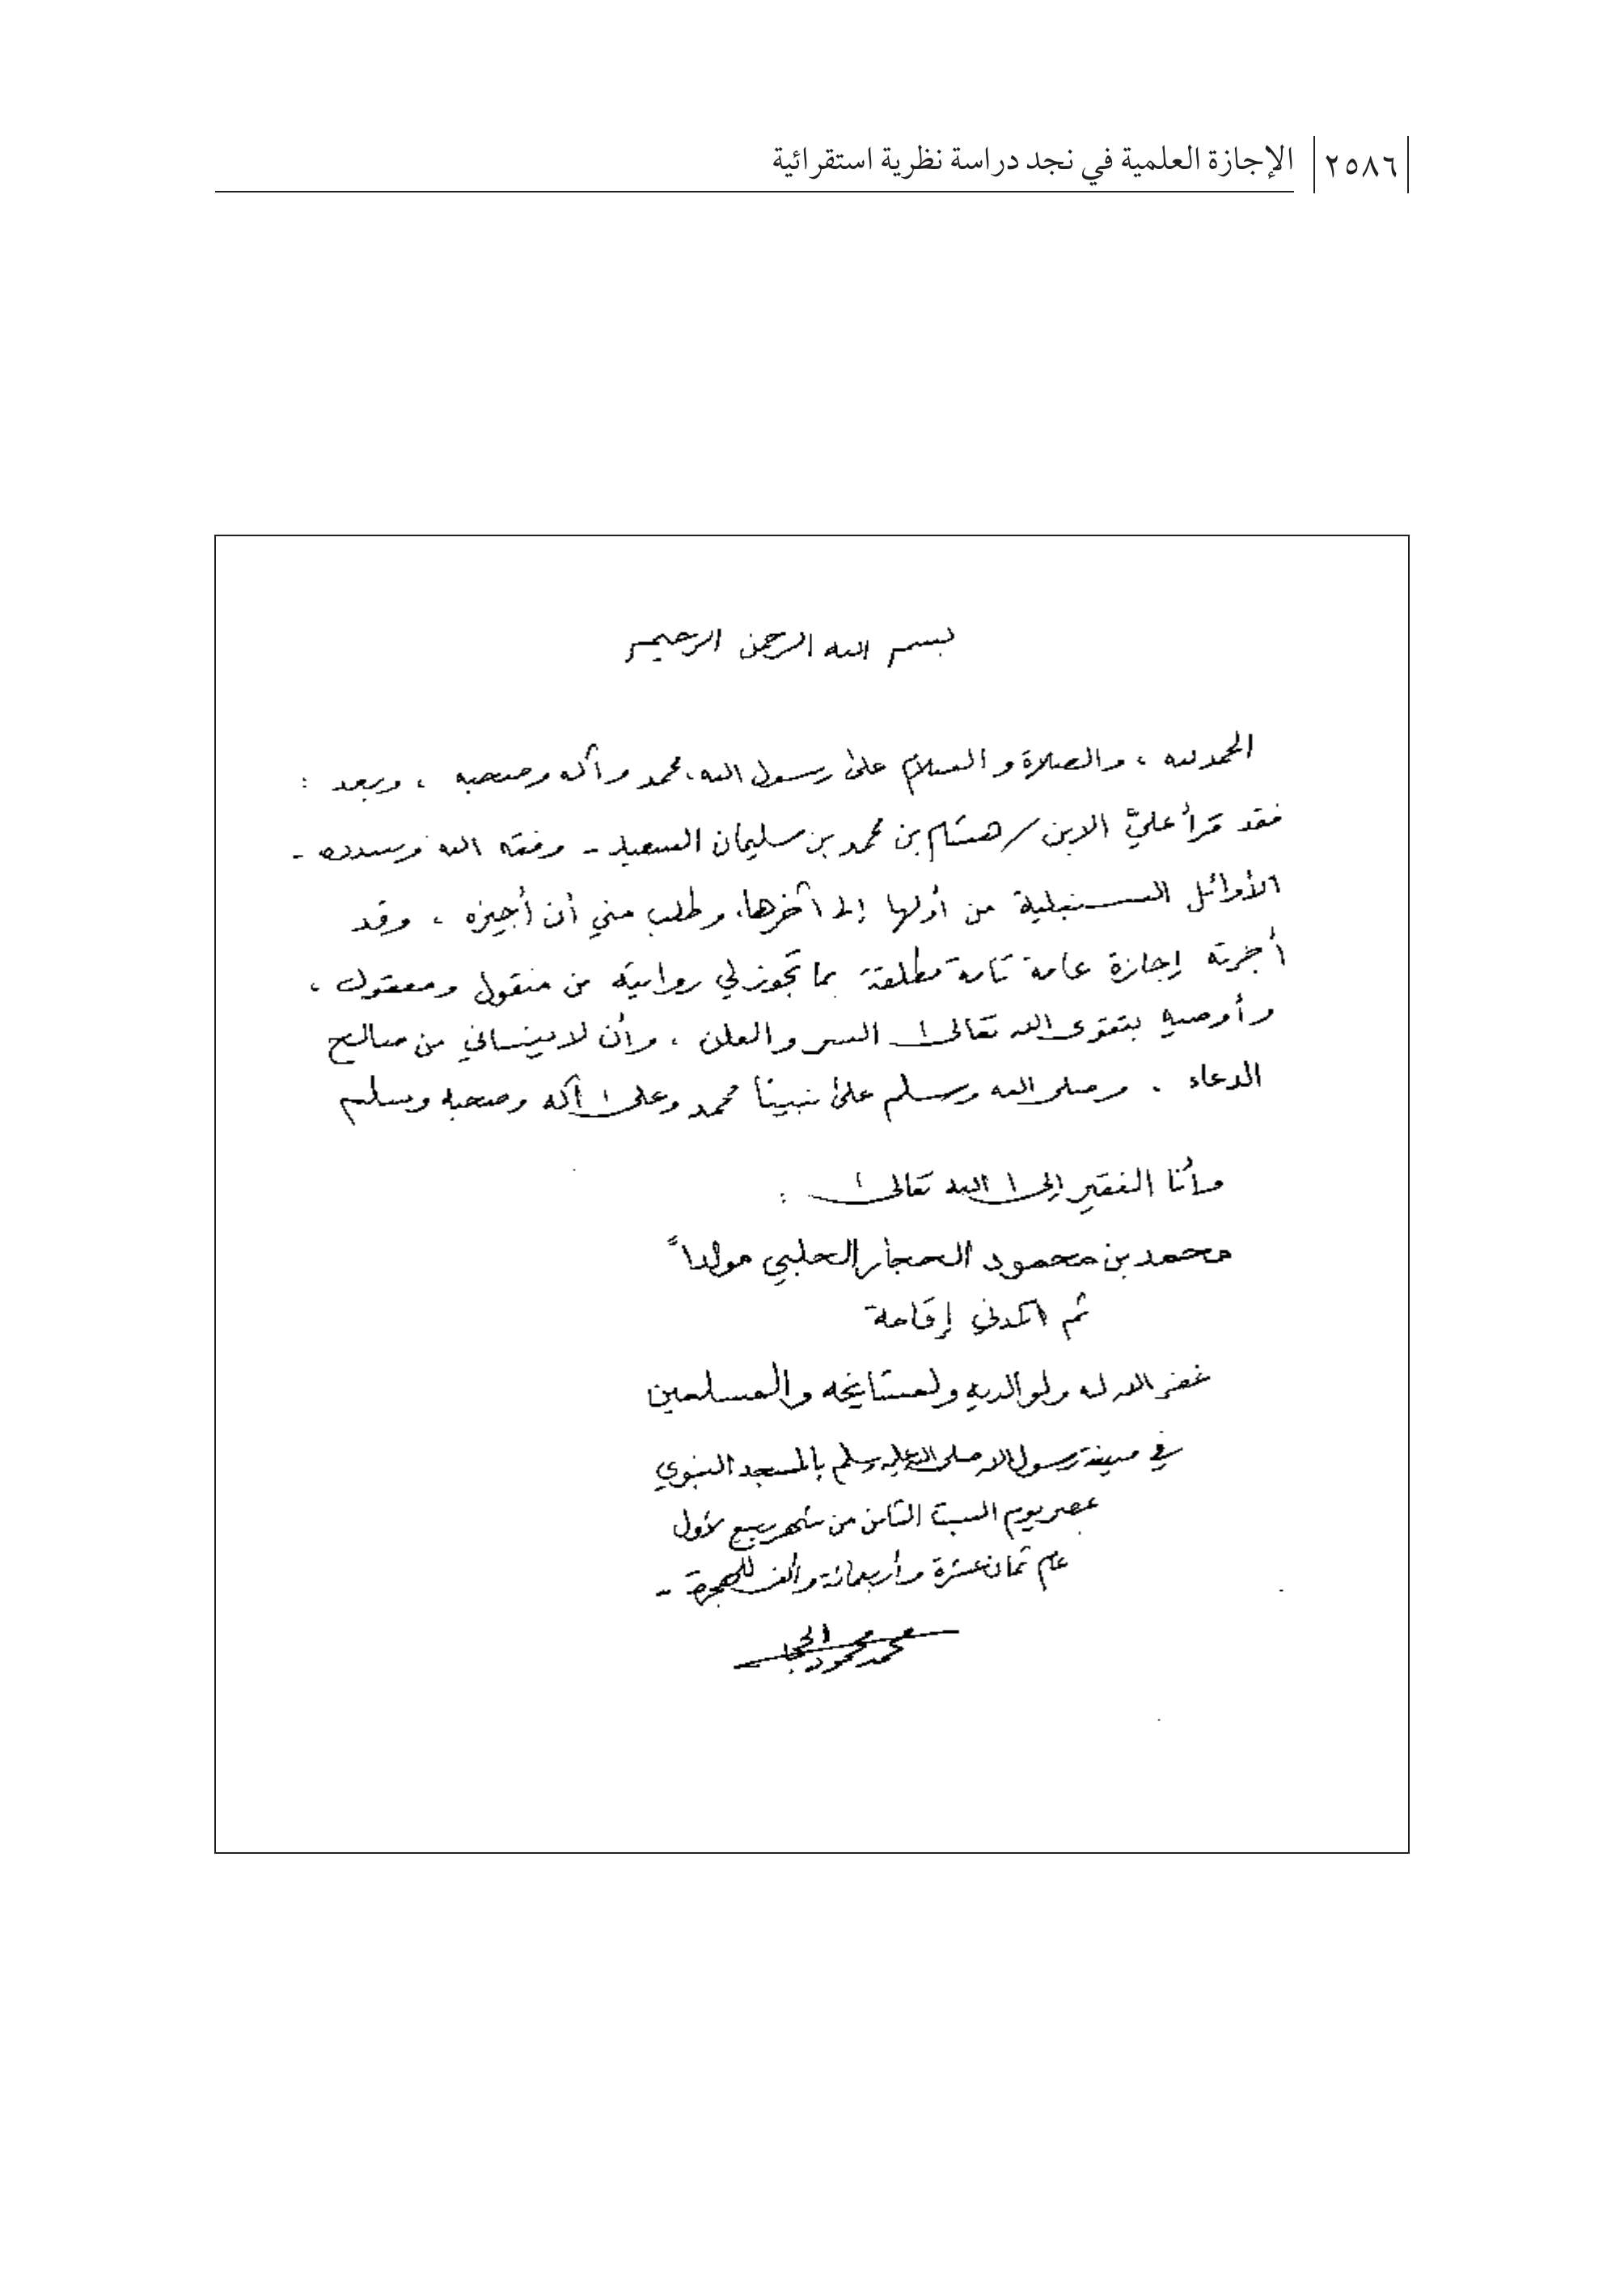 ٢٥٨٦ الإجازة العلمية في نجد دراسة نظرية استقرائية
بسم الله الرحمن الرحيم
الحمد لله ، والصلاة والسلام على رسول الله، محمد وآله وصحبه ، وبعد :
فقد قرأ عليَّ الابن / هشام بن محمد بن سليمان السعيد - وفقه الله وسدده -
الأوائل السنبلية من أولها إلى آخرها، وطلب مني أن أجيزه ، وقد
أجزته إجازة عامة تامة مطلقة بما تجوز لي روايته من منقول ومعقول ،
وأوصيه بتقوى الله تعالى السر والعلن ، وأن لا ينساني من صالح
الدعاء . وصلى الله وسلم على نبينا محمد وعلى آله وصحبه وسلم
وأنا الفقير إلى الله تعالى :
محمد بن محمود الحجار الحلبي مولداً
ثم المدني إقامة
غفر الله له ولوالديه ولمشايخه والمسلمين
في مدينة رسول الله صلى الله عليه وسلم بالمسجد النبوي
عصر يوم السبت الثامن من شهر ربيع لأول
عام ثمان عشرة وأربعمائة وألف للهجرة -
محمد محمود الحجار